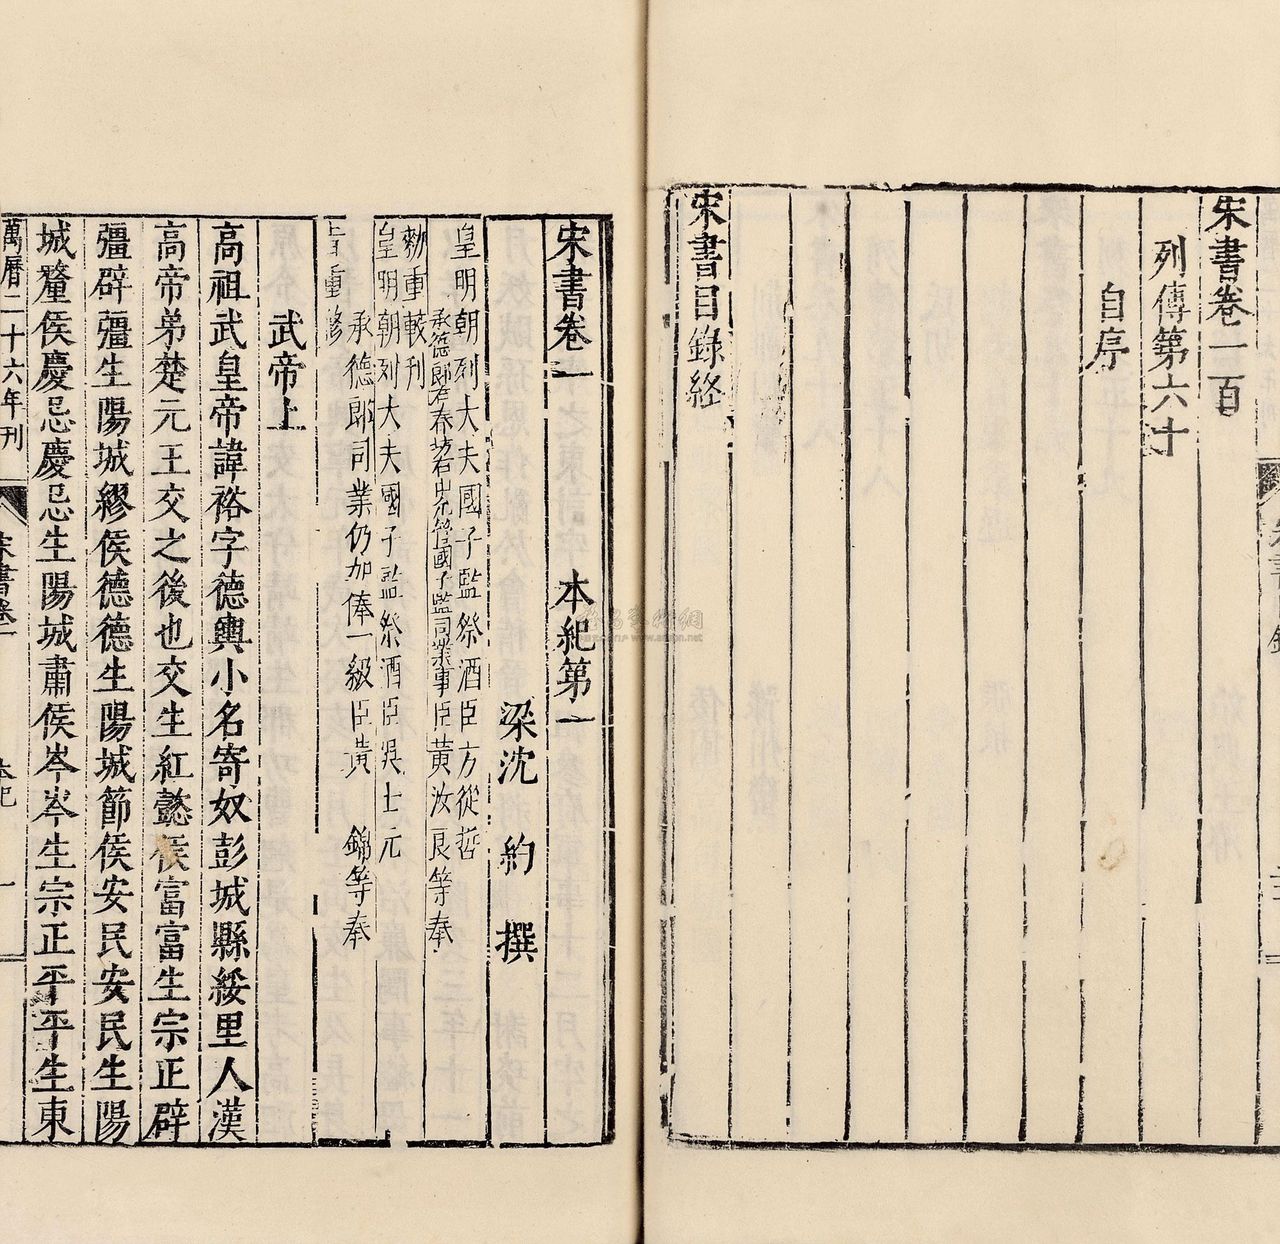 宋書卷一百
列傳第六十
自序
宋書目錄終
宋書卷一 本紀第一
梁沈 約 撰
皇明朝列大夫國子監祭酒臣方從哲
承德郎右春坊右中允管國子監司業事臣黃汝良等奉
勅重較刊
皇明朝列大夫國子監祭酒臣吳士元
承德郎司業仍加俸一級臣黃 錦等奉
旨重修
武帝上
高祖武皇帝諱裕字德輿小名寄奴彭城縣綏里人漢
高帝弟楚元王交之後也交生紅懿侯富富生宗正辟
彊辟彊生陽城繆侯德德生陽城節侯安民安民生陽
城釐侯慶忌慶忌生陽城肅侯岑岑生宗正平平生東
萬曆二十六年刊
宋書卷一
本紀
一